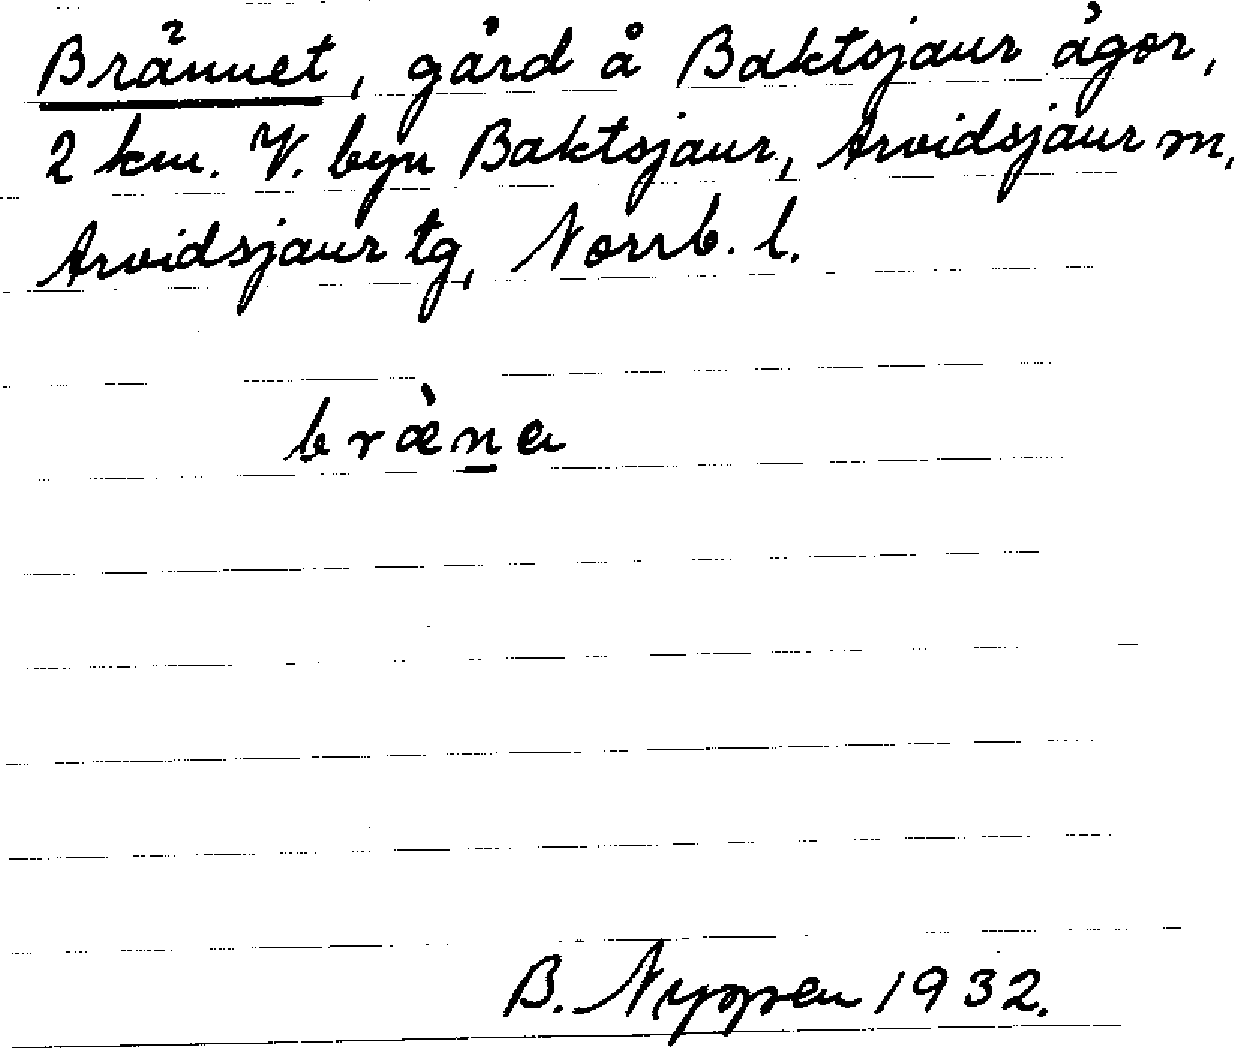 Brännet, gård å Baktsjaur ägor,
2 km. V. byn Baktsjaur, Arvidsjaur sn,
Arvidsjaur tg, Norrb. l.
bræ̀na
B. 1932.